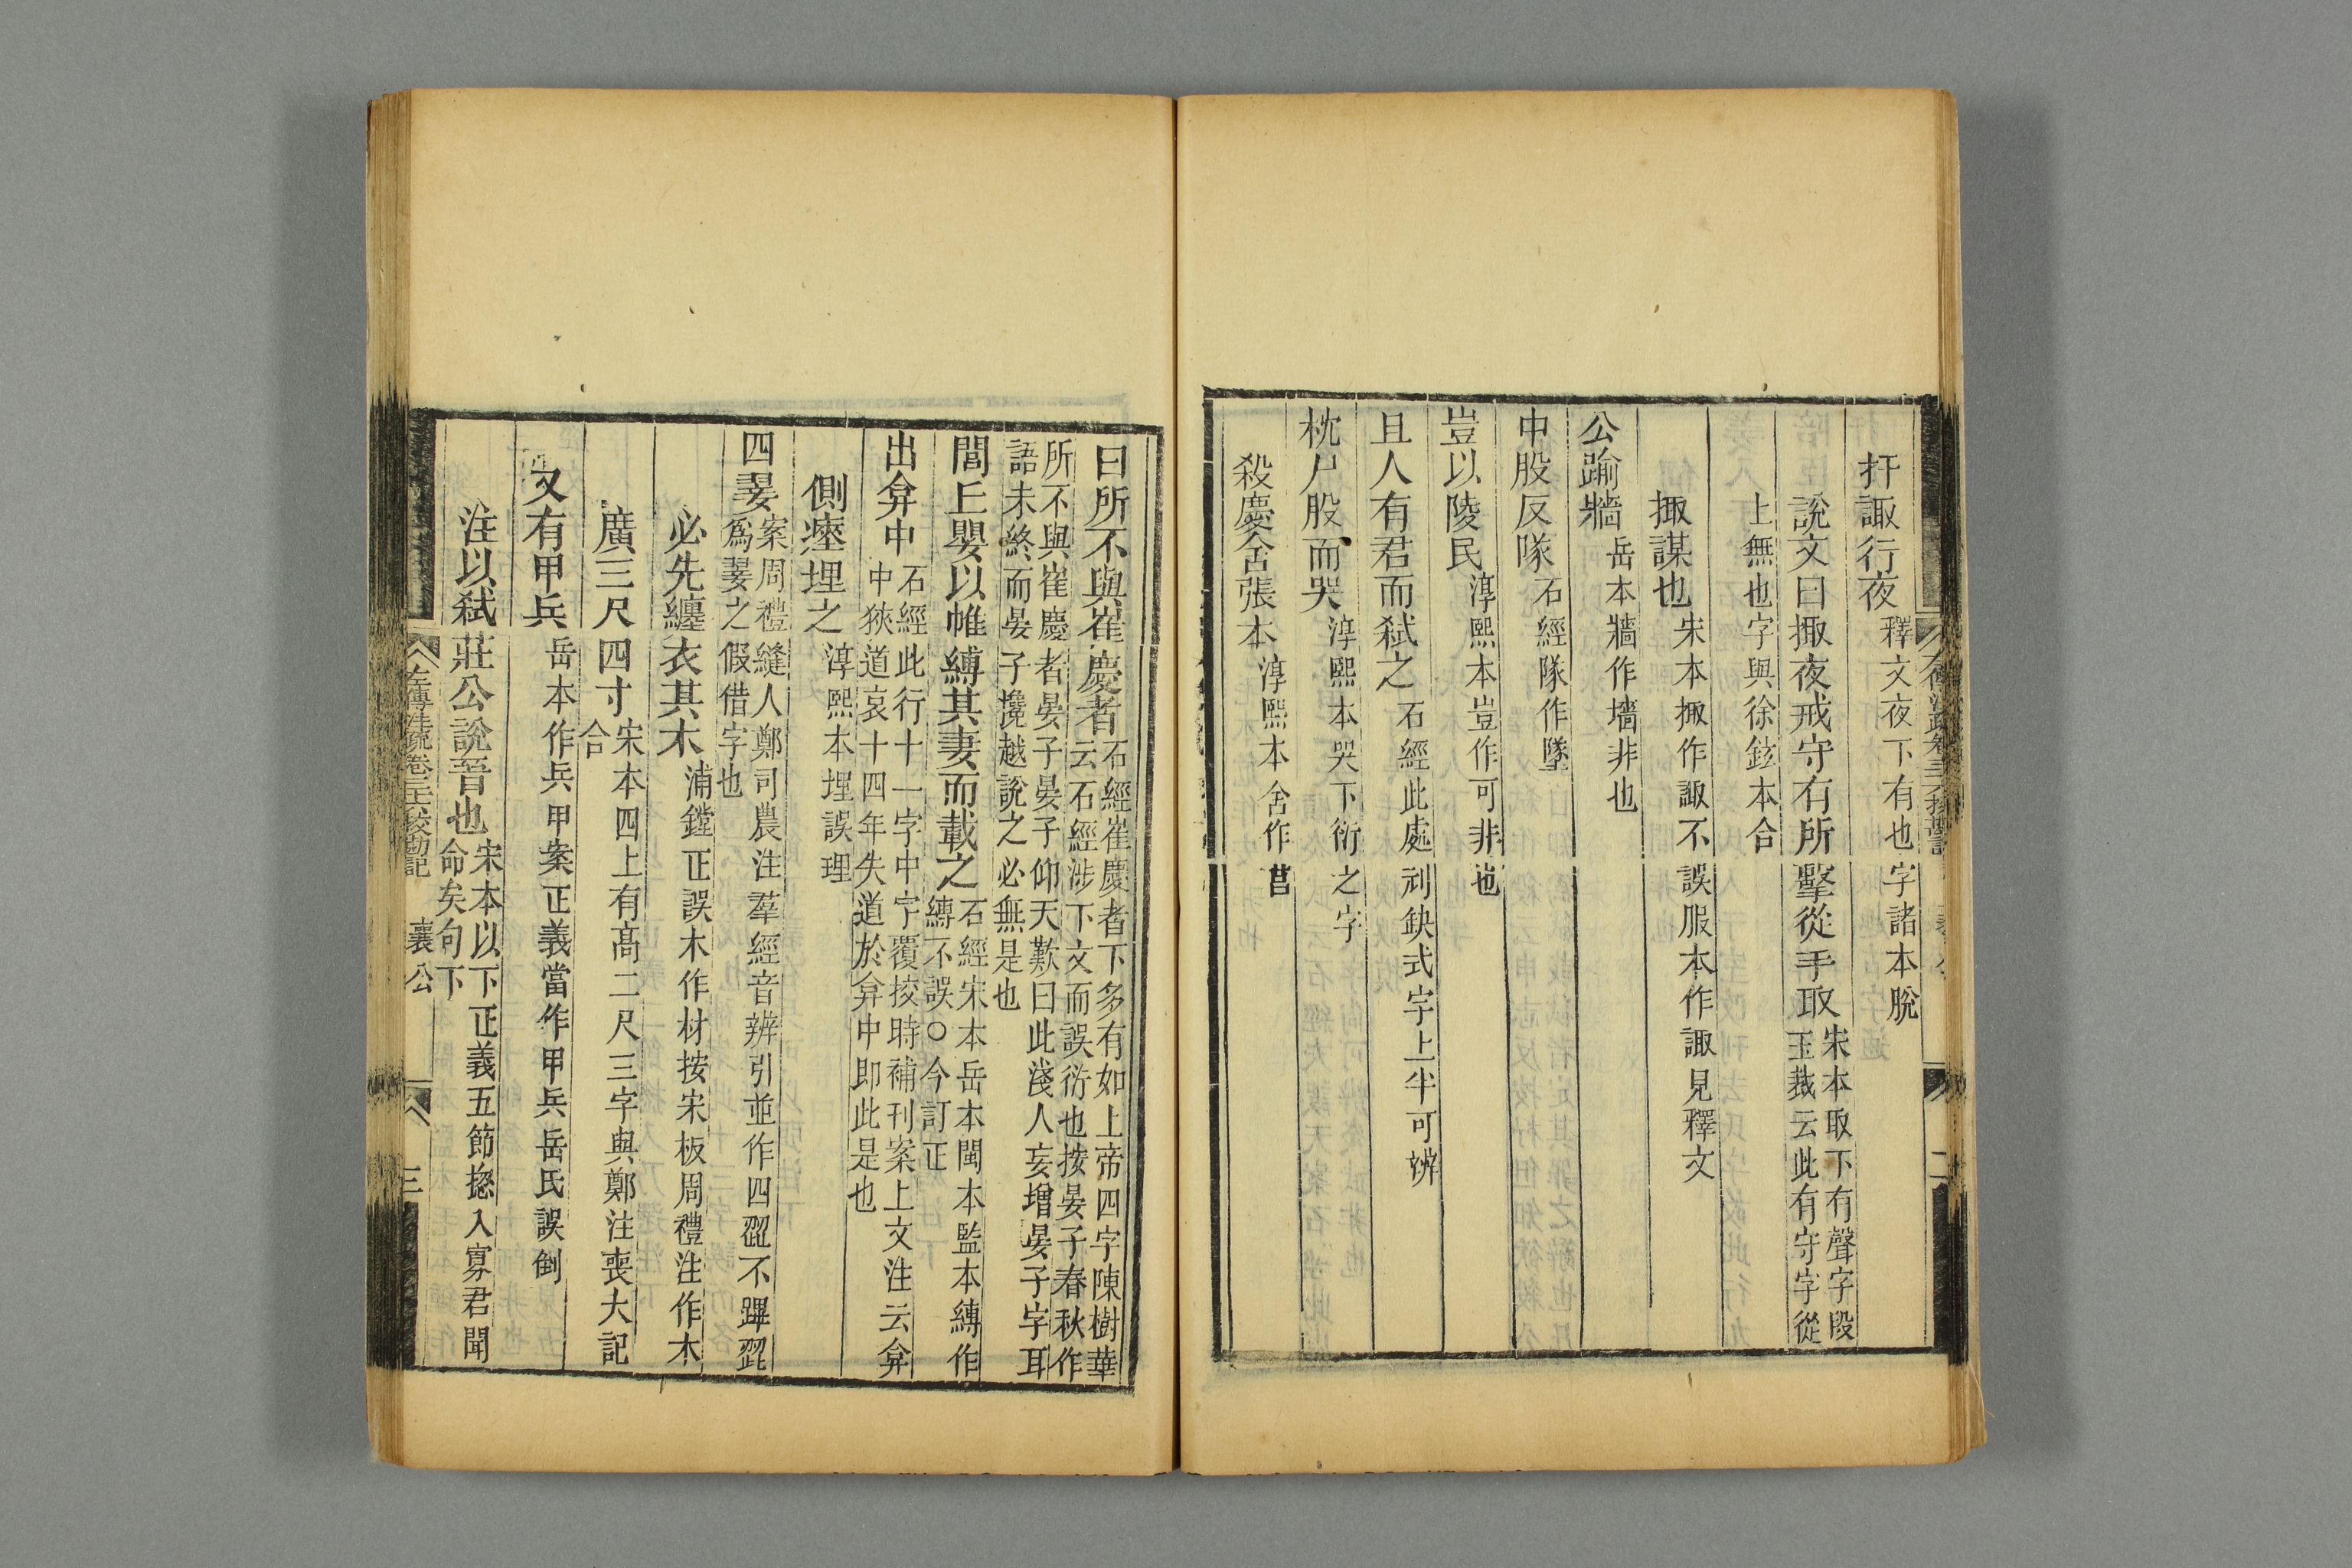 扞諏行夜釋文夜下有也字諸本脫
說文曰掫夜戒守有所擊從手取宋本取下有聲字段
玉裁云此有守字從
上無也字與徐鉉本合
掫謀也宋本掫作諏不誤服本作諏見釋文
公踰牆岳本牆作墻非也
中股反隊石經隊作墜
豈以陵民淳熙本豈作可非也
且人有君而弒之石經此處刓缺式字上半可辨
枕尸股而哭淳熙本哭下衍之字
殺慶舍張本淳熙本舍作莒
二
曰所不與崔慶者石經崔慶者下多有如上帝四字陳樹華
云石經涉下文而誤衍也按晏子春秋作
所不與崔慶者晏子晏子仰天歎曰此淺人妄增晏子字耳
語未終而晏子攙越說之必無是也
閭丘嬰以帷縛其妻而載之石經宋本岳本閩本監本縛作
縳不誤○今訂正
出弇中石經此行十一字中字覆挍時補刊案上文注云弇
中狹道哀十四年失道於弇中即此是也
側瘞埋之淳熙本埋誤理
四翣案周禮縫人鄭司農注羣經音辨引並作四歰不蹕歰
爲翣之假借字也
必先纏衣其木浦鏜正誤木作材按宋板周禮注作木
廣三尺四寸宋本四上有高二尺三字與鄭注喪大記
合
又有甲兵岳本作兵甲案正義當作甲兵岳氏誤倒
注以弒莊公說晉也宋本以下正義五節揔入寡君聞
命矣句下
左傳注疏卷三十六校勘記 襄公 三